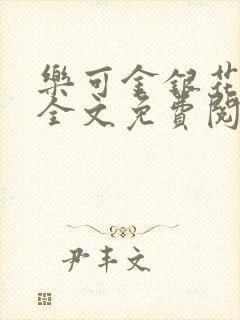 樂可金銀花
全文免費閱
尹丰文